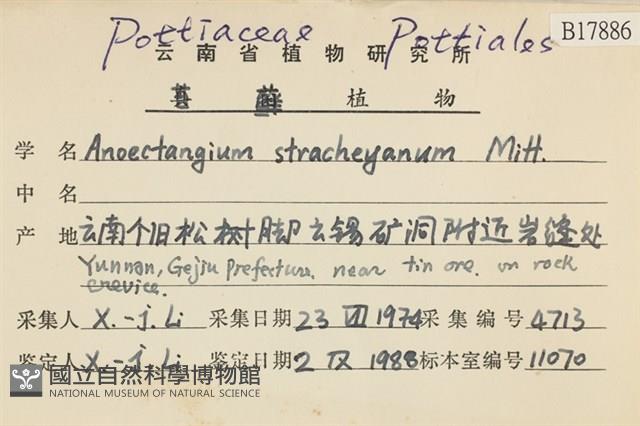 Pottiaceae Pottiales B17886
云南省植物研究所
苔藓植物
学名 Anoectangium stracheyanum Mitt.
中名
产地 云南个旧松树脚云锡矿洞附近岩缝处
Yunnan, Gejiu Prefecture. near tin ore. on rock
crevice.
采集人 X.-J. Li 采集日期 23 VII 1974 采集编号 4713
鉴定人 X.-J. Li 鉴定日期 2 IX 1988 标本室编号 11070
國立自然科學博物館
NATIONAL MUSEUM OF NATURAL SCIENCE